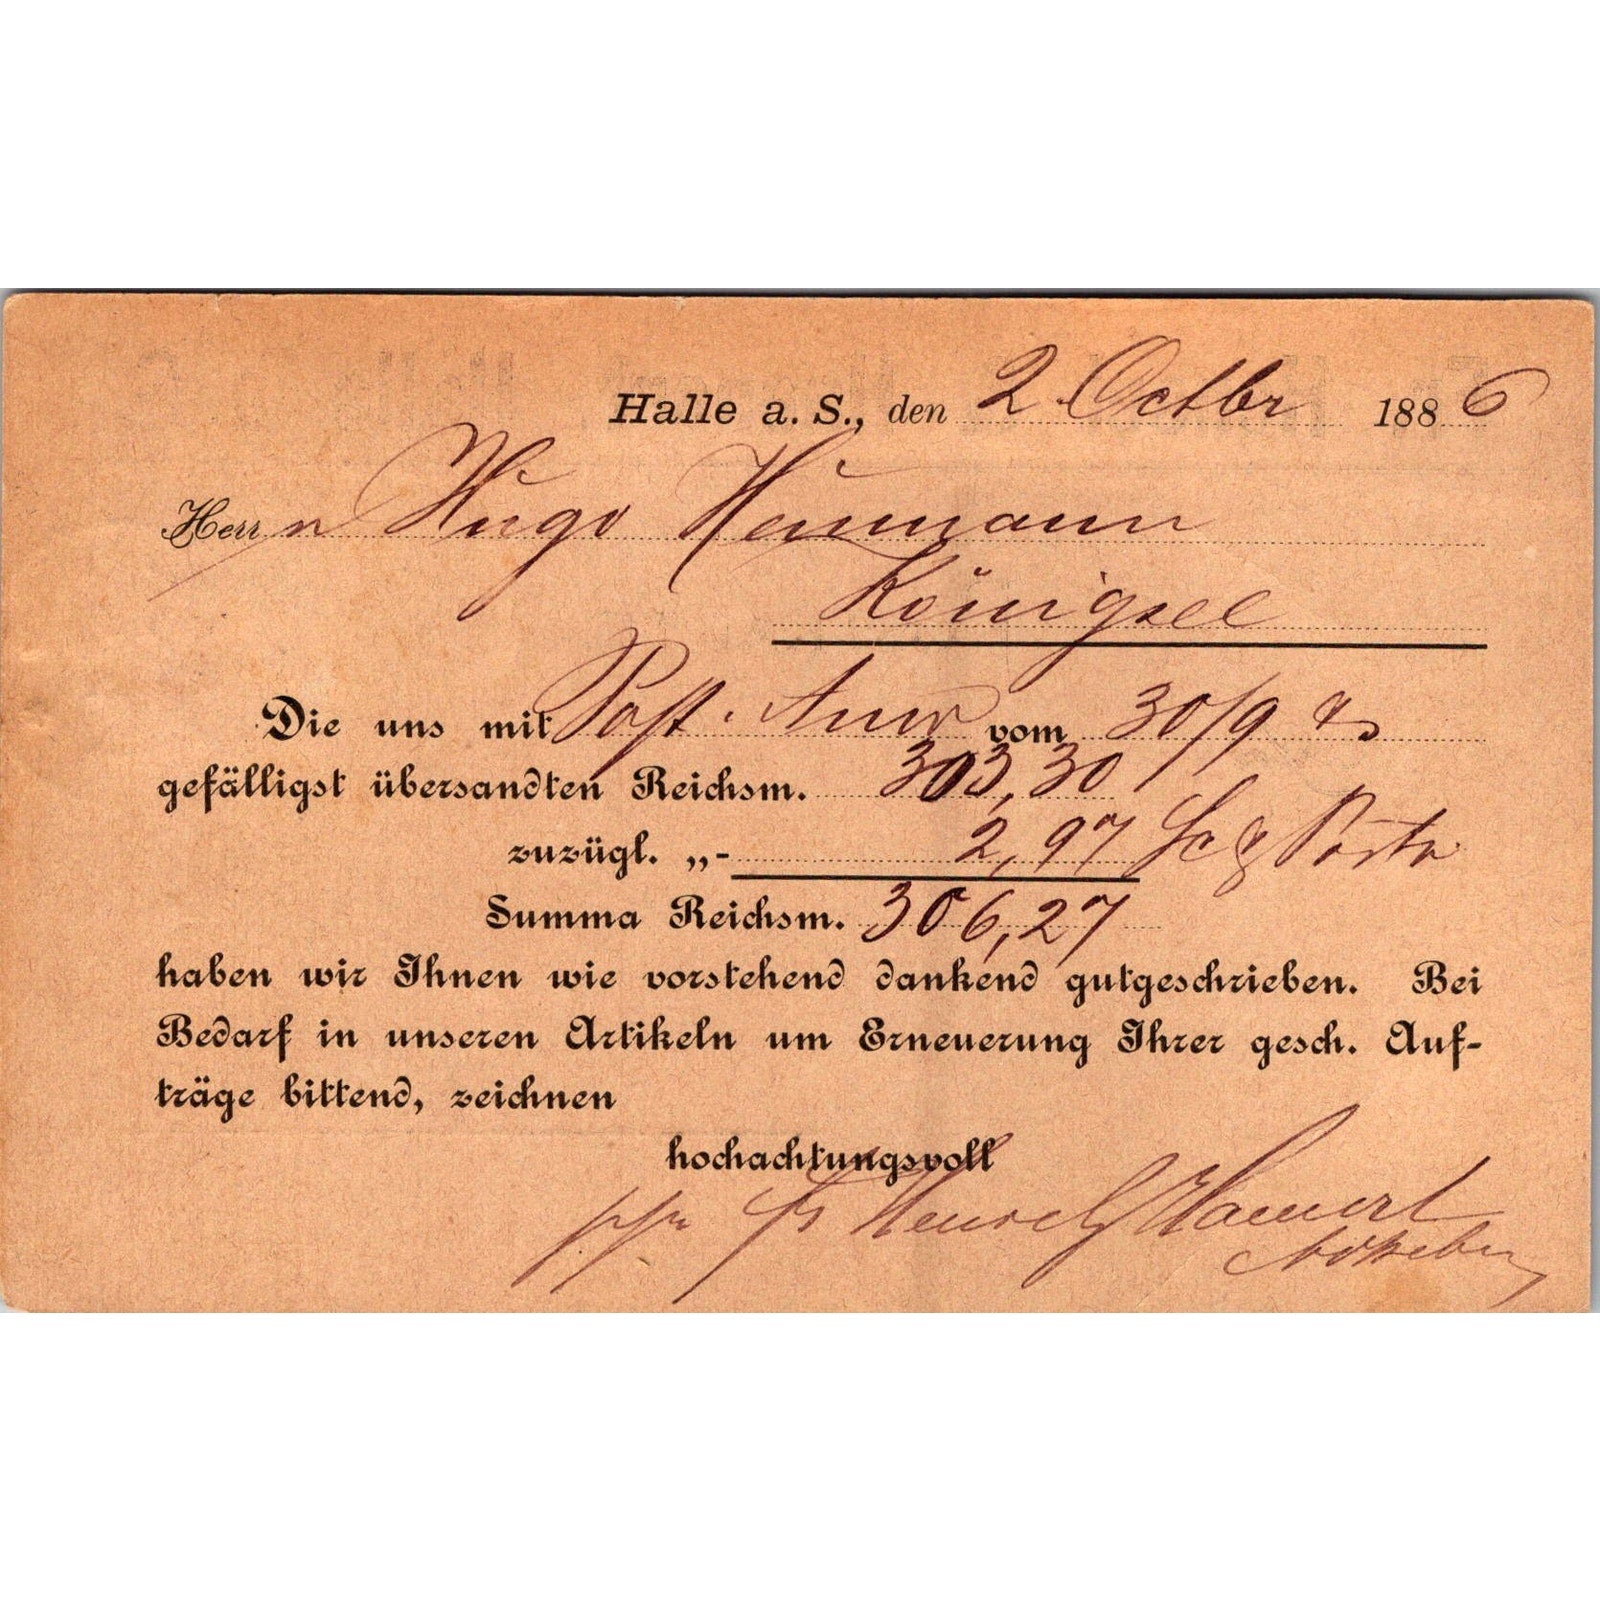 Halle a. S., den 2 Octbr 1886
Herrn Hugo Neumann
Königsee
Die uns mit Post-Anw vom 30/9 ds
gefälligst übersandten Reichsm. 303,30
zuzügl. „- 2,97 Sc & Porto
Summa Reichsm. 306,27
haben wir Ihnen wie vorstehend dankend gutgeschrieben. Bei
Bedarf in unseren Artikeln um Erneuerung Ihrer gesch. Auf-
träge bittend, zeichnen
hochachtungsvoll
ppa Fr Hensel & Haenert